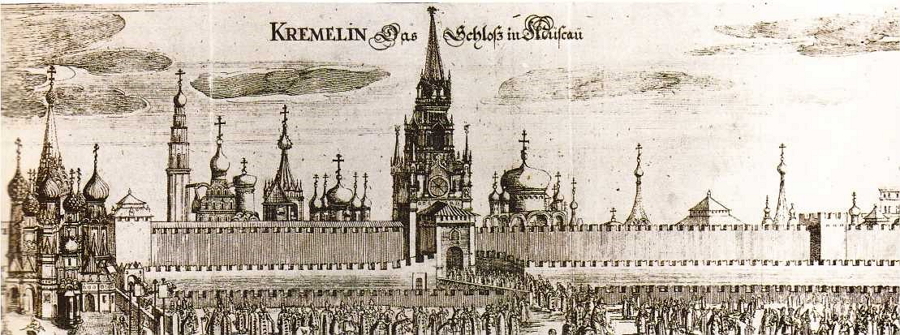 KREMELIN Das Schloß in Muscau